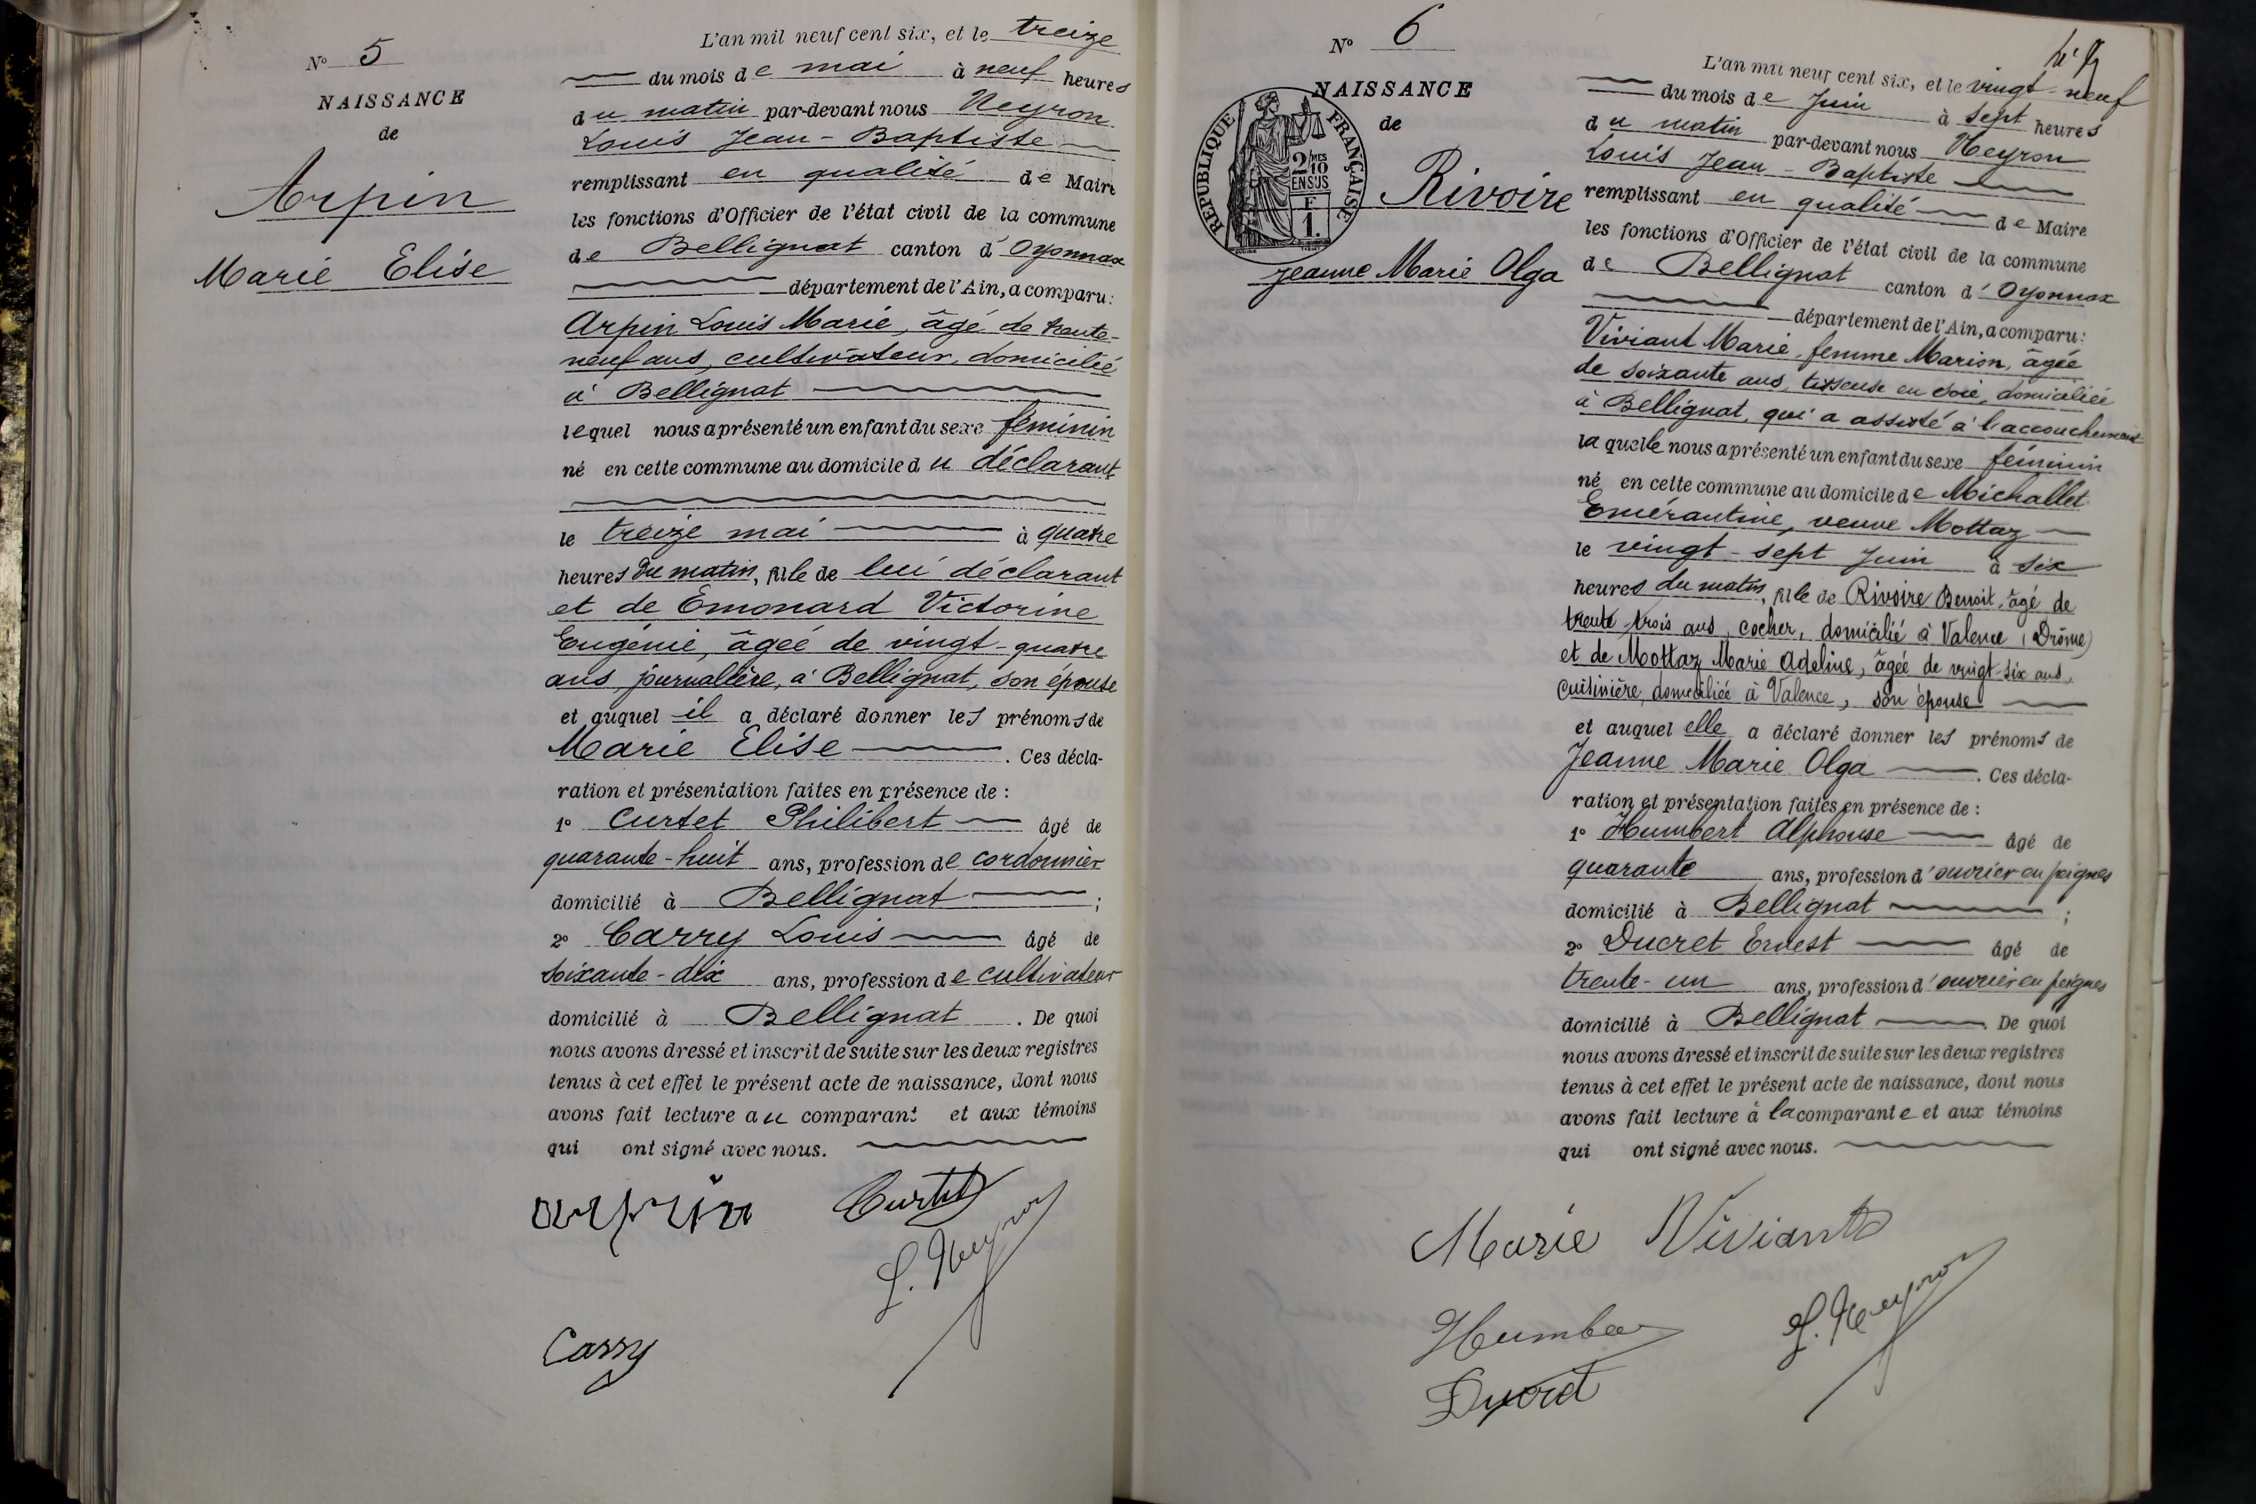 N° 5
NAISSANCE
de
Arpin
Marie Elise
L'an mil neuf cent six, et le treize
du mois de mai à neuf heures
du matin par-devant nous Neyron
Louis Jean-Baptiste
remplissant en qualité de Maire
les fonctions d'Officier de l'état civil de la commune
de Bellignat canton d'Oyonnax
département de l'Ain, a comparu:
Arpin Louis Marie, âgé de trente-
neuf ans, cultivateur, domicilié
à Bellignat
lequel nous a présenté un enfant du sexe féminin
né en cette commune au domicile du déclarant
le treize mai à quatre
heures du matin, fille de lui déclarant
et de Emonard Victorine
Eugénie, âgée de vingt-quatre
ans journalière, à Bellignat, son épouse
et auquel il a déclaré donner les prénoms de
Marie Elise. Ces décla-
ration et présentation faites en présence de :
1° Curtet Philibert âgé de
quarante-huit ans, profession de cordonnier
domicilié à Bellignat ;
2° Carry Louis âgé de
soixante-dix ans, profession de cultivateur
domicilié à Bellignat. De quoi
nous avons dressé et inscrit de suite sur les deux registres
tenus à cet effet le présent acte de naissance, dont nous
avons fait lecture au comparant et aux témoins
qui ont signé avec nous.
arpin Curtet
L. Neyron
Carry
N° 6
NAISSANCE
de
RÉPUBLIQUE FRANÇAISE
2/10 MES
EN SUS
F
1.
Rivoire
Jeanne Marie Olga
L'an mil neuf cent six, et le vingt-neuf
du mois de Juin à sept heures
du matin par-devant nous Neyron
Louis Jean-Baptiste
remplissant en qualité de Maire
les fonctions d'Officier de l'état civil de la commune
de Bellignat canton d'Oyonnax
département de l'Ain, a comparu:
Viviant Marie, femme Marion, âgée
de soixante ans, tisseuse en soie, domiciliée
à Bellignat, qui a assisté à l'accouchement
laquelle nous a présenté un enfant du sexe féminin
né en cette commune au domicile de Michallet
Emérantine, veuve Mottaz
le vingt-sept Juin à six
heures du matin, fille de Rivoire Benoit, âgé de
trente-trois ans, cocher, domicilié à Valence (Drôme)
et de Mottaz Marie Adeline, âgée de vingt-six ans,
cuisinière, domiciliée à Valence, son épouse
et auquel elle a déclaré donner les prénoms de
Jeanne Marie Olga. Ces décla-
ration et présentation faites en présence de :
1° Humbert Alphonse âgé de
quarante ans, profession d'ouvrier en peignes
domicilié à Bellignat ;
2° Ducret Ernest âgé de
trente-un ans, profession d'ouvrier en peignes
domicilié à Bellignat. De quoi
nous avons dressé et inscrit de suite sur les deux registres
tenus à cet effet le présent acte de naissance, dont nous
avons fait lecture à la comparante et aux témoins
qui ont signé avec nous.
Marie Viviant
Humbert
L. Neyron
Ducret